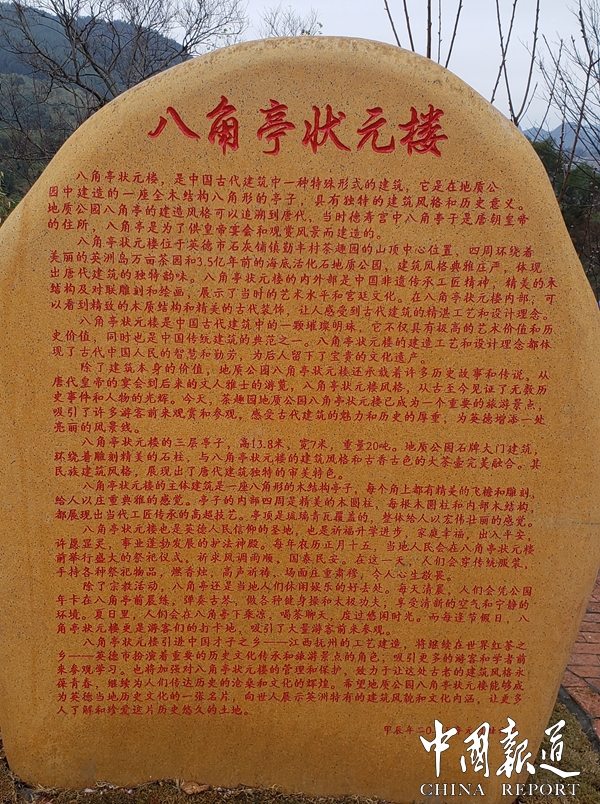 八角亭状元楼
八角亭状元楼，是中国古代建筑中一种特殊形式的建筑，它是在地质公
园中建造的一座全木结构八角形的亭子，具有独特的建筑风格和历史意义。
地质公园八角亭的建造风格可以追溯到唐代，当时德寿宫中八角亭子是唐朝皇帝
的住所，八角亭是为了供皇帝宴会和观赏风景而建造的。
八角亭状元楼位于英德市石灰铺镇勤丰村茶趣园的山顶中心位置，四周环绕着
美丽的英洲岛万亩茶园和3.5亿年前的海底活化石地质公园，建筑风格典雅庄严，体现
出唐代建筑的独特韵味。八角亭状元楼的内外部是中国非遗传承工匠精神，精美的木
结构及对联雕刻和绘画，展示了当时的艺术水平和宫廷文化。在八角亭状元楼内部，可
以看到精致的木质结构和精美的古代装饰，让人感受到古代建筑的精湛工艺和设计理念。
八角亭状元楼是中国古代建筑中的一颗璀璨明珠，它不仅具有极高的艺术价值和历
史价值，同时也是中国传统建筑的典范之一。八角亭状元楼的建造工艺和设计理念都体
现了古代中国人民的智慧和勤劳，为后人留下了宝贵的文化遗产。
除了建筑本身的价值，地质公园八角亭状元楼还承载着许多历史故事和传说，从
唐代皇帝的宴会到后来的文人雅士的游览，八角亭状元楼风格，从古至今见证了无数历
史事件和人物的光辉。今天，茶趣园地质公园八角亭状元楼已成为一个重要的旅游景点，
吸引了许多游客前来观赏和参观，感受古代建筑的魅力和历史的厚重，为英德增添一处
亮丽的风景线。
八角亭状元楼的三层亭子，高13.8米，宽7米，重量20吨。地质公园石牌大门建筑，
环绕着雕刻精美的石柱，与八角亭状元楼的建筑风格和古香古色的大茶壶完美融合。其
民族建筑风格，展现出了唐代建筑独特的审美特色。
八角亭状元楼的主体建筑是一座八角形的木结构亭子，每个角上都有精美的飞檐和雕刻，
给人以庄重典雅的感觉。亭子的内部四周是精美的木圆柱，每根木圆柱和内部木结构
都展现出当代工匠传承的高超技艺。亭顶是琉璃青瓦覆盖的，整体给人以宏伟壮丽的感觉。
八角亭状元楼也是英德人民信仰的圣地，也是祈福升学进步，家庭幸福，出入平安，
许愿显灵，事业蓬勃发展的护法神殿。每年农历正月十五，当地人民会在八角亭状元楼
前举行盛大的祭祀仪式，祈求风调雨顺、国泰民安。在这一天，人们会穿传统服装，
手持各种祭祀物品，燃香烛，高声祈祷，场面庄重肃穆，令人心生敬畏。
除了宗教活动，八角亭还是当地人们休闲娱乐的好去处。每天清晨，人们会凭公园
年卡在八角亭前晨练，弹奏古筝，做各种健身操和太极功夫，享受清新的空气和宁静的
环境。夏日里，人们会在八角亭下乘凉，喝茶聊天，度过悠闲时光。而每逢节假日，八
角亭状元楼更是游客们的打卡地，吸引了大量游客前来参观。
八角亭状元楼引进中国才子之乡——江西抚州的工艺建造，将继续在世界红茶之
乡——英德市扮演着重要的历史文化传承和旅游景点的角色，吸引更多的游客和学者前
来参观学习。也将加强对八角亭状元楼的管理和保护，致力于让这处古老的建筑风格永
葆青春，继续为人们传达历史的沧桑和文化的辉煌。希望地质公园八角亭状元楼能够成
为英德当地历史文化的一张名片，向世人展示英洲特有的建筑风貌和文化内涵，让更多
人了解和珍爱这片历史悠久的土地。
甲辰年二〇
中国报道
CHINA REPORT